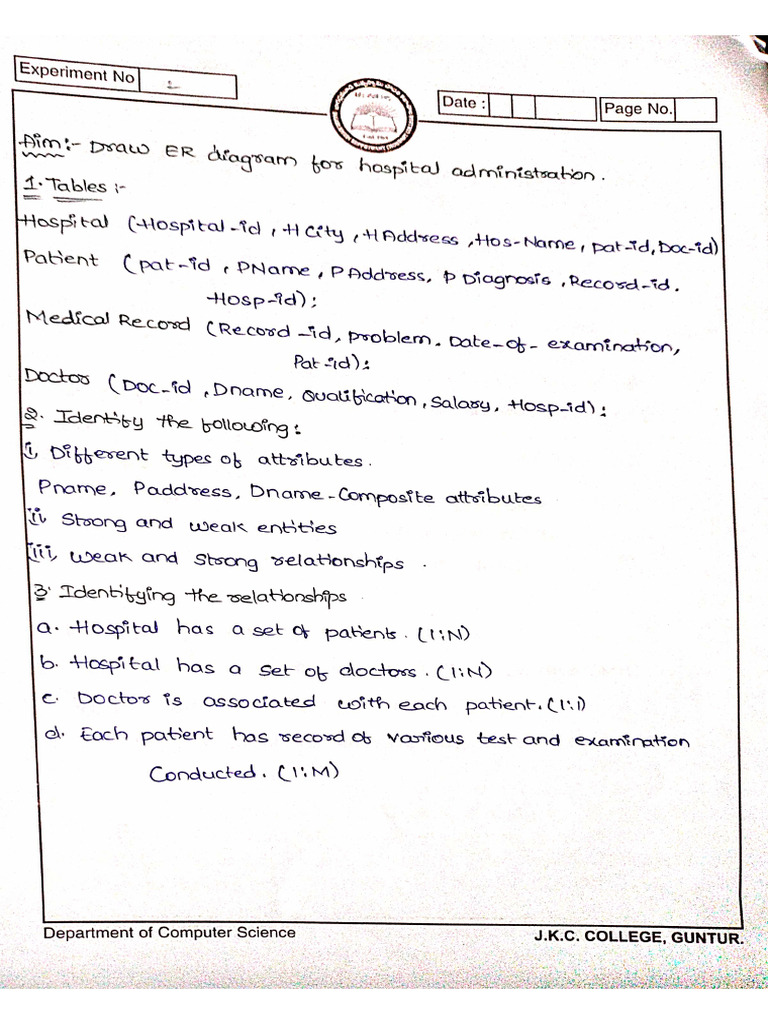 Experiment No 2
Date :
Page No.
Aim:- Draw ER diagram for hospital administration.
1. Tables :-
Hospital (Hospital-id, H City, H Address, Hos-Name, pat-id, Doc-id)
Patient (pat-id, PName, P Address, P Diagnosis, Record-id.
Hosp-id);
Medical Record (Record-id, problem. Date-of-examination,
Pat-id);
Doctor (Doc-id, Dname, Qualification, Salary, Hosp-id);
2. Identify the following:
i, Different types of attributes.
Pname, Paddress, Dname-Composite attributes
ii, Strong and weak entities
iii, weak and strong relationships.
3. Identifying the relationships
a. Hospital has a set of patients. (1:N)
b. Hospital has a set of doctors. (1:N)
c. Doctor is associated with each patient. (1:1)
d. Each patient has record of various test and examination
Conducted. (1:M)
Department of Computer Science
J.K.C. COLLEGE, GUNTUR.